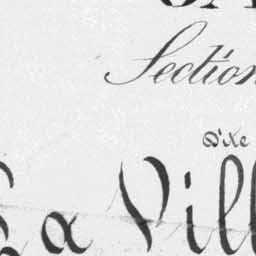 Section
D'Xe
La Vill